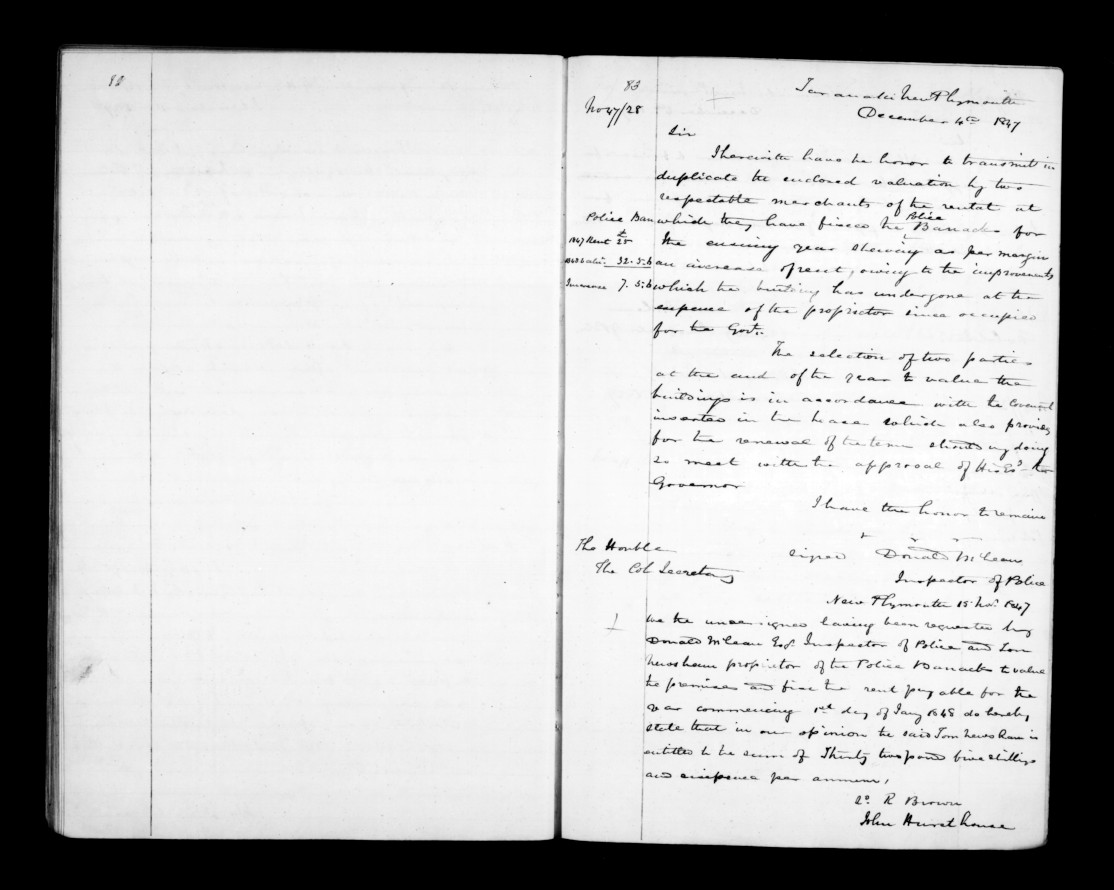 82
83
No 47/28
Taranaki New Plymouth
December 4th 1847
Sir
I herewith have the honor to transmit in
duplicate the enclosed valuation by two
respectable merchants of the rental at
which they have fixed the Police Barracks for
the ensuing year shewing as per margin
an increase of rent, owing to the improvements
which the building has undergone at the
expense of the proprietor since occupied
for the Govt.
Police Barr
1847 Rent £ 25
1848 valtn. 32.5.6
Increase 7.5.6
The selection of two parties
at the end of the year to value the
buildings is in accordance with the Covenant
inserted in the lease which also provides
for the renewal of the term should my doing
so meet with the approval of His Ex the
Governor
I have the honor to remain
signed Donald McLean
Inspector of Police
The Honble
The Col Secretary
New Plymouth 15 Nov. 1847
We the undersigned having been requested by
Donald McLean Esq. Inspector of Police and Tom
Newsham proprietor of the Police Barracks to value
the premises and fix the rent payable for the
year commencing 1st day of Jany 1848 do hereby
state that in our opinion the said Tom Newsham is
entitled to the sum of Thirty two pound five shillings
and sixpence per annum,
R Brown
John Hursthouse